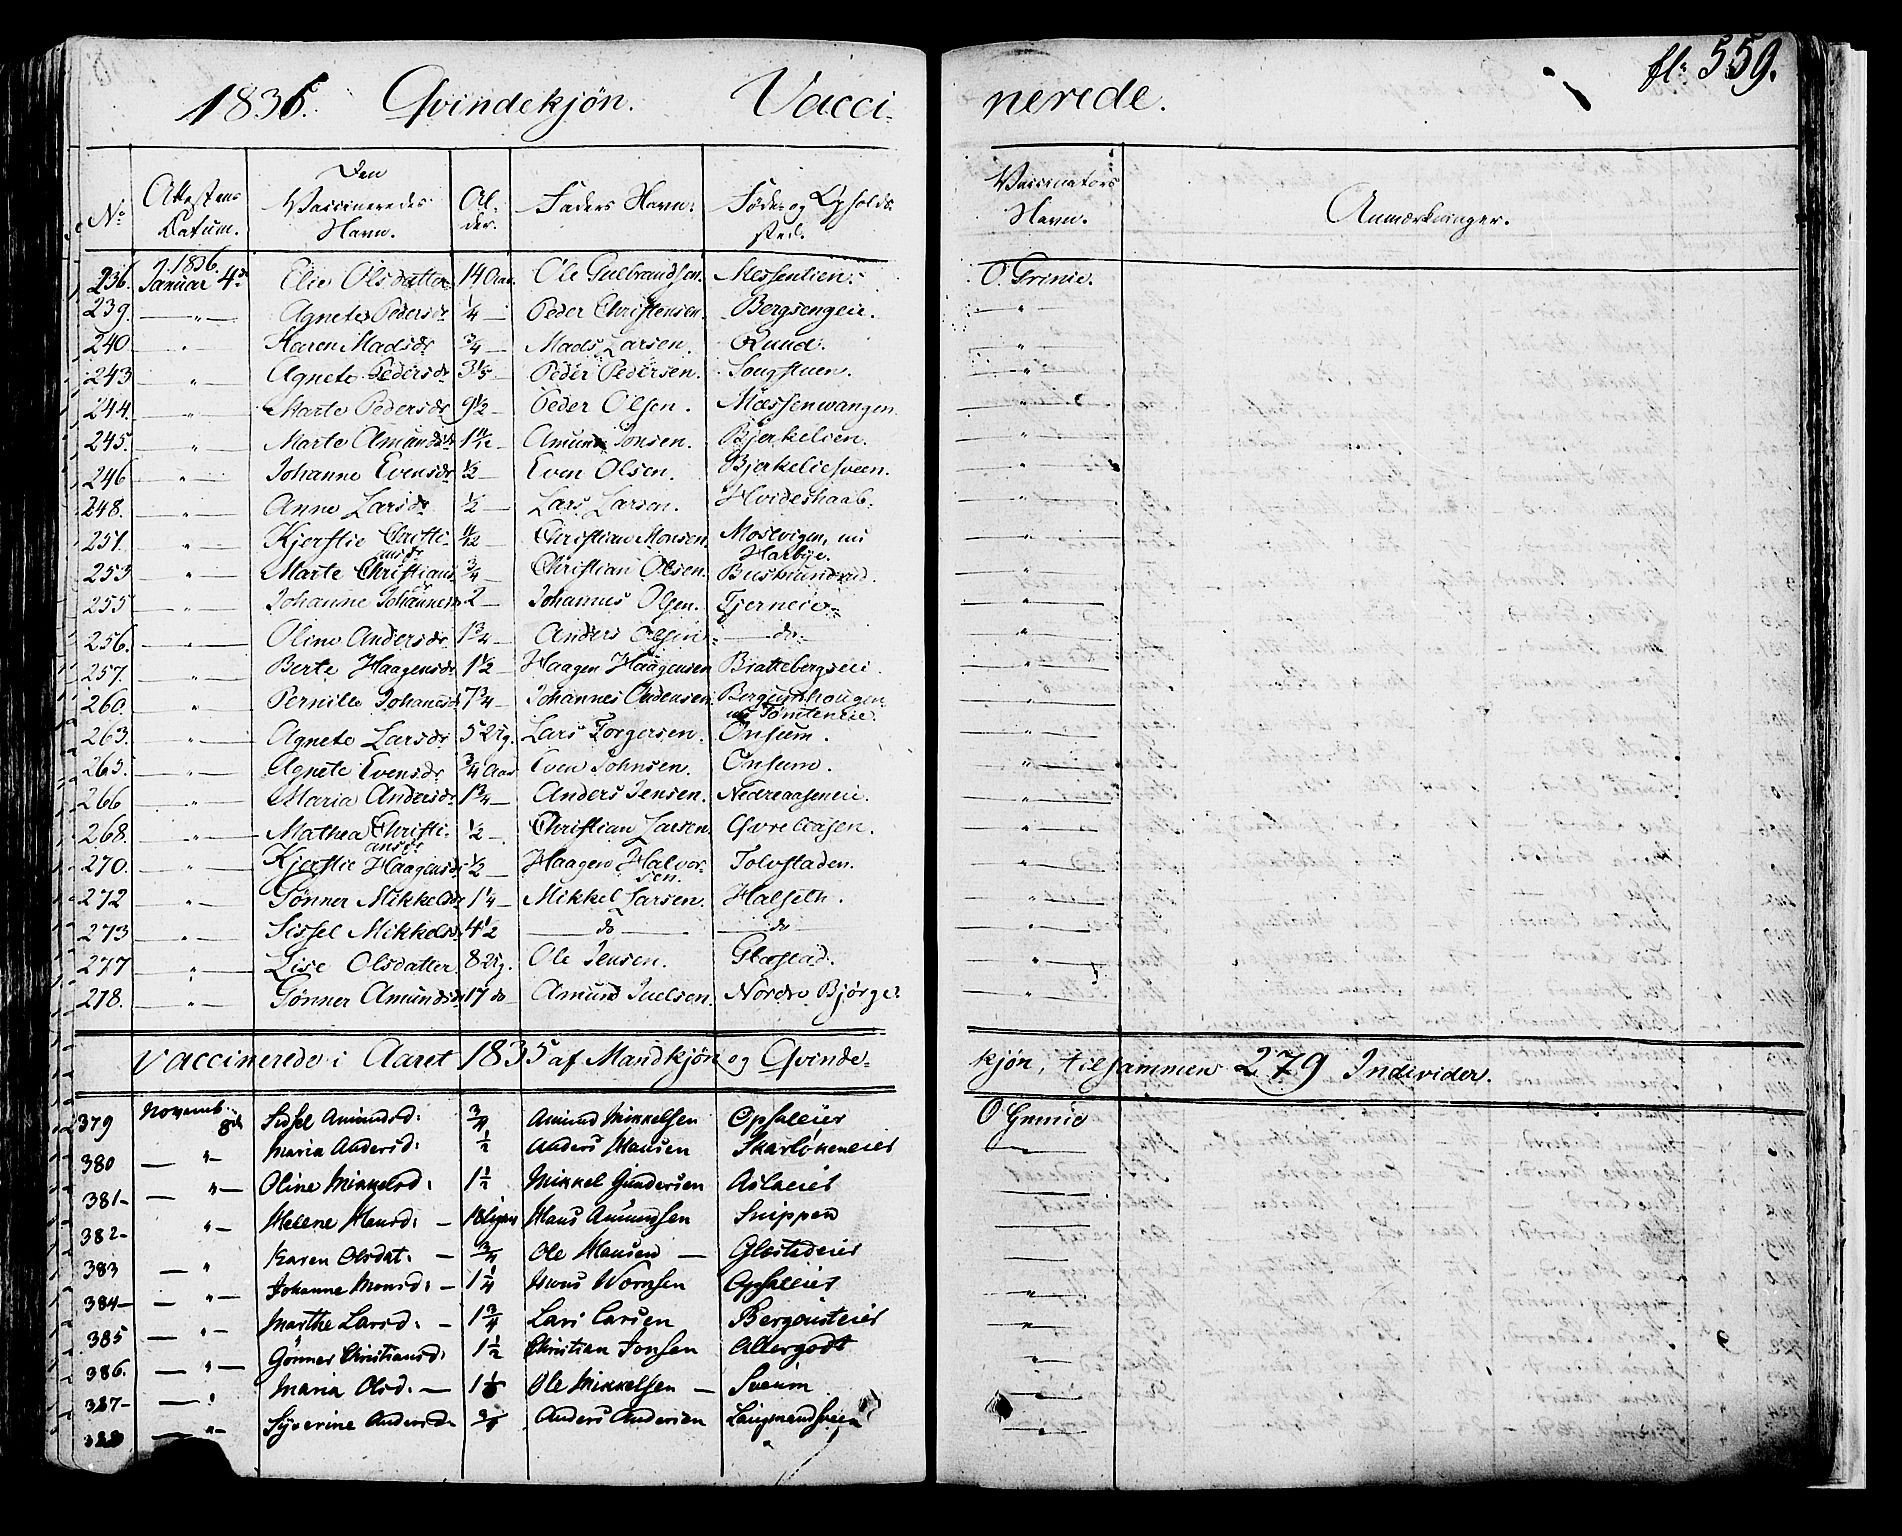 fl: 559.
1836. Qvindekjøn. Vacci- nerede.
No Attestens Datum. Den Vaccineredes Navn. Al- der. Faders Navn. Føde- og Opholds- sted. Vaccinators Navn. Anmærkninger.
236. 1836. Januar 4de Elie Olsdatter 14 Aar. Ole Gulbrandsen. Messenlien. O. Grinie.
239. — " — Agnete Pedersdr 1/4 — Peder Christensen. Bergsengeie. — " —
240 — " — Karen Madsdr 3/4 — Mads Larsen. Ruud. — " —
243 — " — Agnete Pedersdr 3 1/5 — Peder Pedersen. — " —
244. — " — Marte Pedersdr 9 1/2 — Peder Olsen. Mæssenwangen — " —
245. — " — Marte Amundsdr 1 11/12 — Amund Jonsen. Bjerkelien. — " —
246 — " — Johanne Evensdr 1/2 — Even Olsen. Bjerkeliesveen. — " —
248. — " — Anne Larsdr 1/2 — Lars Larsen. Hvideskaab. — " —
251. — " — Kjerstie Christi- ansdr 11/12 — Christian Monsen. — " —
253 — " — Marte Christians 3/4 — Christian Olsen. — " —
255 — " — Johanne Johannesdr 2 — Johannes Olsen. Tjerneie — " —
256. — " — Oline Andersdr 1 3/4 — Anders Olsen — do — — " —
257. — " — Berte Haagensdr 1 1/2 Haagen Haagensen Brattebergseie — " —
260. — " — Pernille Johanesd 7 3/4 — Johannes Andersen — " —
263. — " — Agnete Larsdr 5 Lars Torgersen. Onsum. — " —
265. — " — Agnete Evensdr 3/4 Aar Even Johnsen. Onsum. — " —
266 — " — Maria Andersdr 1 3/4 — Anders Jensen. Nedreaaseneie. — " —
268. — " — Mathea Christi- ansdr 1/2 — Christian Larsen. Øvre Aasen. — " —
270. — " — Kjerstie Haagensdr 1/2 — Haagen Halvor- sen. Tolvstaden. — " —
272 — " — Gønner Mikkelsdr 1 1/4 — Mikkel Larsen. Halseth. — " —
273 — " — Sissel Mikkelsdr 4 1/2 — do — — do — — " —
277 — " — Lise Olsdatter 8 Ole Jensen. Glæstad. — " —
278. — " — Gønner Amundsdr 17 do Amund Juelsen. Nordre Bjørge. — " —
Vaccinerede i Aaret 1835 af Mandkjøn og Qvinde- kjøn, tilsammen 279 Individer.
379 Novemb. 8de Sidsel Amundsd: 3/4 Amund Mikkelsen Opsaleiet O Grinie
380 — " — Maria Andersd: 1/2 Anders Hansen Skarløkeneiet
381- — " — Oline Mikkelsd: 1 1/2 Mikkel Gundersen Aslaeiet
382- " Helene Hansd: — 18 Ugers Hans Amundsen Snippen
383 — " Karen Olsdat: — 3/4 Ole Hansen — Glæstadeiet
384- — " — Johanne Monsd: — 1 1/4 Opsaleiet — " —
385 — " — Marthe Larsd: — 1 3/4 Lars Larsen — " —
386. — " — Gønner Christiansd: 1 1/2 Christian Jonsen Altergodt — " —
387- — " Maria Olsd. — 1 Ole Mikkelsen — Sveum — " —
388 — " — Syverine Andersd Anders Andersen — " —